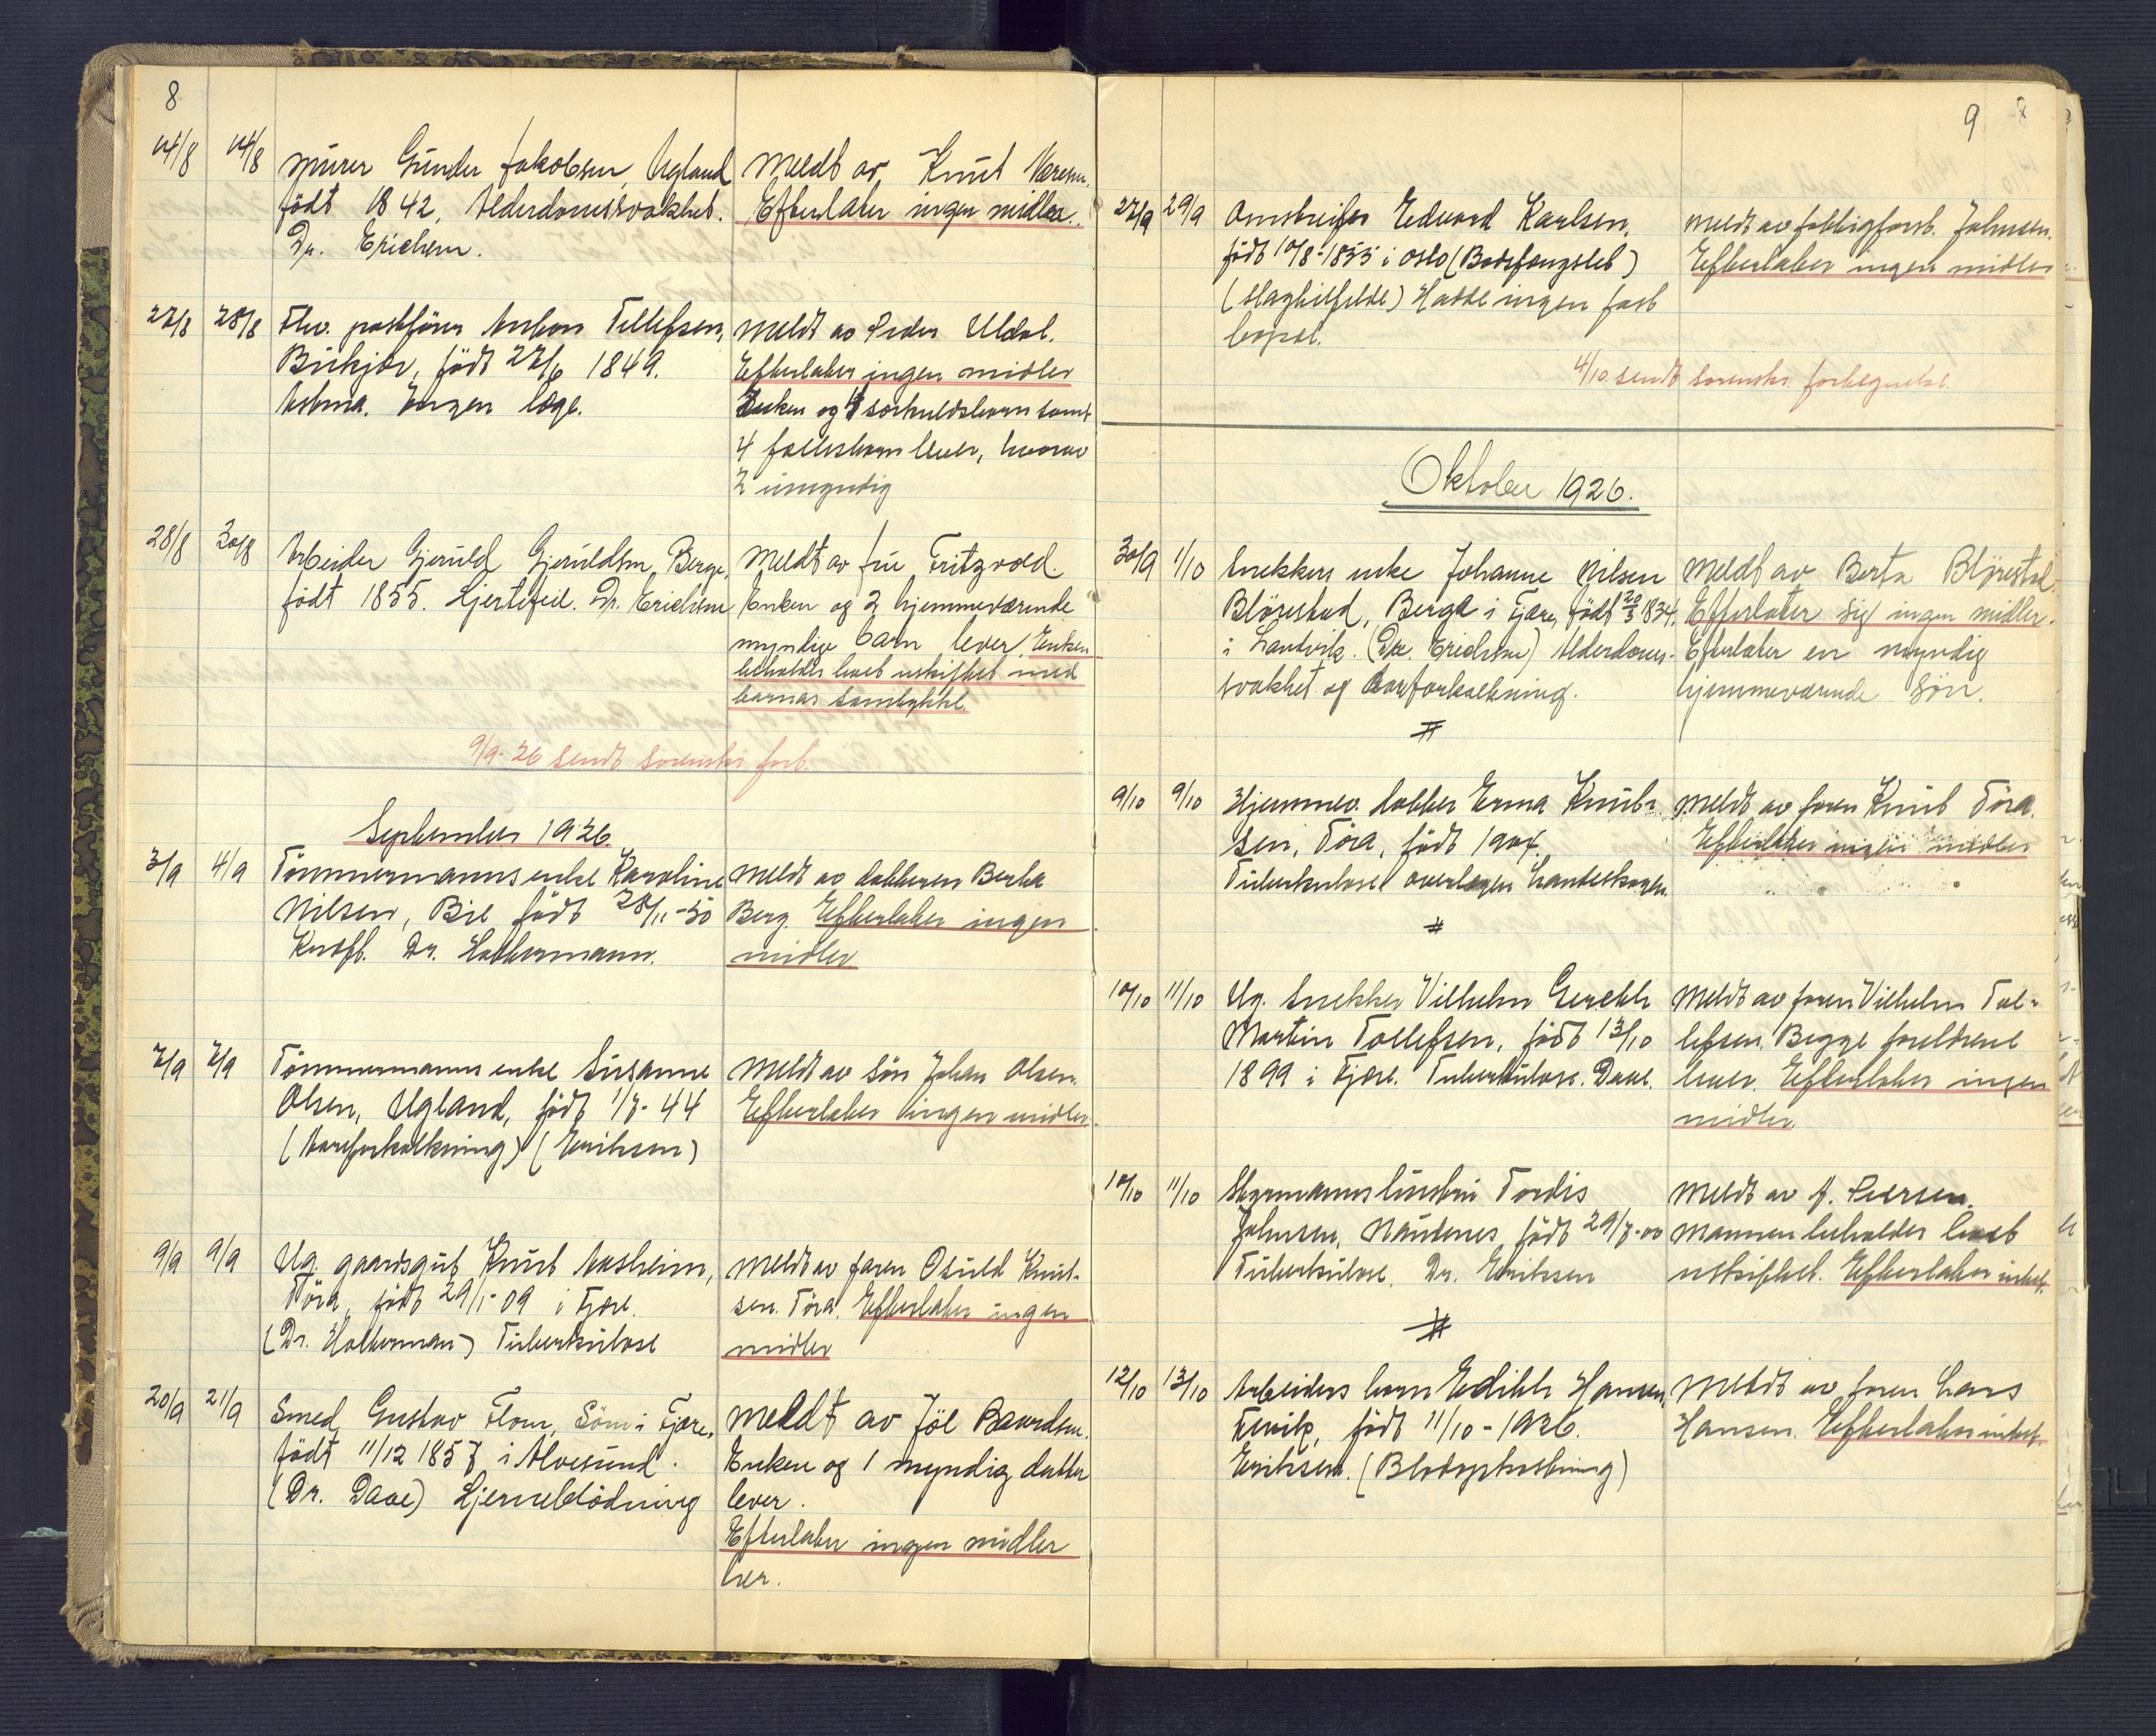 8
14/8 14/8 Murer Gunder Jakobsen, Ugland
født 1842, Alderdomssvakhet.
Dr. Erichsen.
Meldt av Knut
Efterlater ingen midler.
27/8 28/8 Fhv. postfører Anton Tellefsen,
Birkjær, født 27/6 1849.
Astma. Ingen læge.
Meldt av Peder Uldal.
Efterlater ingen midler
Enken og særkuldsbarn samt
4 fællesbarn lever, hvorav
2 umyndig
28/8 30/8 Arbeider Gjeruld Gjeruldsen, Berge,
født 1855. Hjertefeil. Dr. Erichsen
Meldt av fru Fritzvold.
Enken og 2 hjemmeværende
myndige barn lever. Enken
beholder boet uskiftet med
barnas samtykke.
9/9-26 sendt sorenskr. fort.
September 1926.
3/9 4/9 Tømmermanns enke Karoline
Nilsen, Bie født 28/11-50
Kræft. Dr. Holtermann.
Meldt av datteren Berta
Berg. Efterlater ingen
midler
7/9 7/9 Tømmermanns enke Susanne
Olsen, Ugland, født 1/7-44
(Aareforkalkning) (Eriksen)
Meldt av søn Johan Olsen.
Efterlater ingen midler.
9/9 9/9 Ug. gaardsgut Knut Aasheim,
Töra, født 29/1-09 i Fjære.
(Dr. Holterman) Tuberkulose
Meldt av faren Osuld Knut-
sen. Töra. Efterlater ingen
midler
20/9 21/9 Smed Gustav Flom, Söm i Fjære,
født 11/12 1857 i Alvesund.
(Dr. Daae) Hjerneblödning
Meldt av Jöl Baardsen.
Enken og 1 myndig datter
lever.
Efterlater ingen midler
her.
9
27/9 29/9 Omstreifer Edvard Karlsen,
født 10/8-1855 i Oslo (Bodsfængslet)
(Slagtilfelde) Hadde ingen fast
bopæl.
Meldt av fattigforst. Johnsen.
Efterlater ingen midler
4/10 sendt sorenskr. fortegnelse.
Oktober 1926.
30/9 1/10 Snekkers enke Johanne Nilsen
Blörestad, Berge i Fjære, født 20/3 1834.
i Landvik. (Dr. Erichsen) Alderdoms-
svakhet og aareforkalkning.
Meldt av Berta Blörestad.
Efterlater sig ingen midler.
Efterlater en myndig
hjemmeværende sön.
9/10 9/10 Hjemmev. datter Erna Knut-
sen, Töra, født 1904.
Tuberkulose overlægen Landeskogen.
Meldt av faren Knut Töra.
Efterlater ingen midler
10/10 11/10 Ug. Snekker Vilhelm Gerhk
Martin Tollefsen, født 13/10
1899 i Fjære. Tuberkulose. Daae.
Meldt av faren Vilhelm Tol-
lefsen. Begge foreldrene
lever. Efterlater ingen
midler
10/10 11/10 Styrmannshustru Tordis
Johnsen, Naudenes, født 29/7-00
Tuberkulose. Dr. Eriksen
Meldt av A. Persen.
Mannen beholder boet
uskiftet. Efterlater intet.
12/10 13/10 Arbeiders barn Edith Hansen,
Fevik, født 11/10-1926.
Eriksen. (Blodopkastning)
Meldt av faren Lars
Hansen. Efterlater intet.